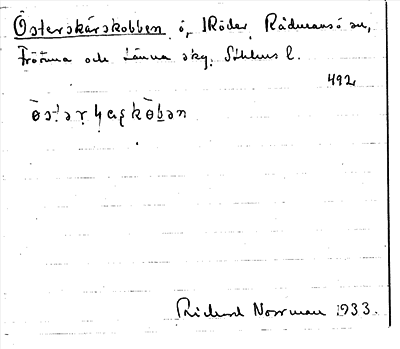 Österskärskobben ö, IRöder, Rådmansö sn,
Frötuna och Länna skg. Sthlms l.
492
Rickard Norrman 1933.